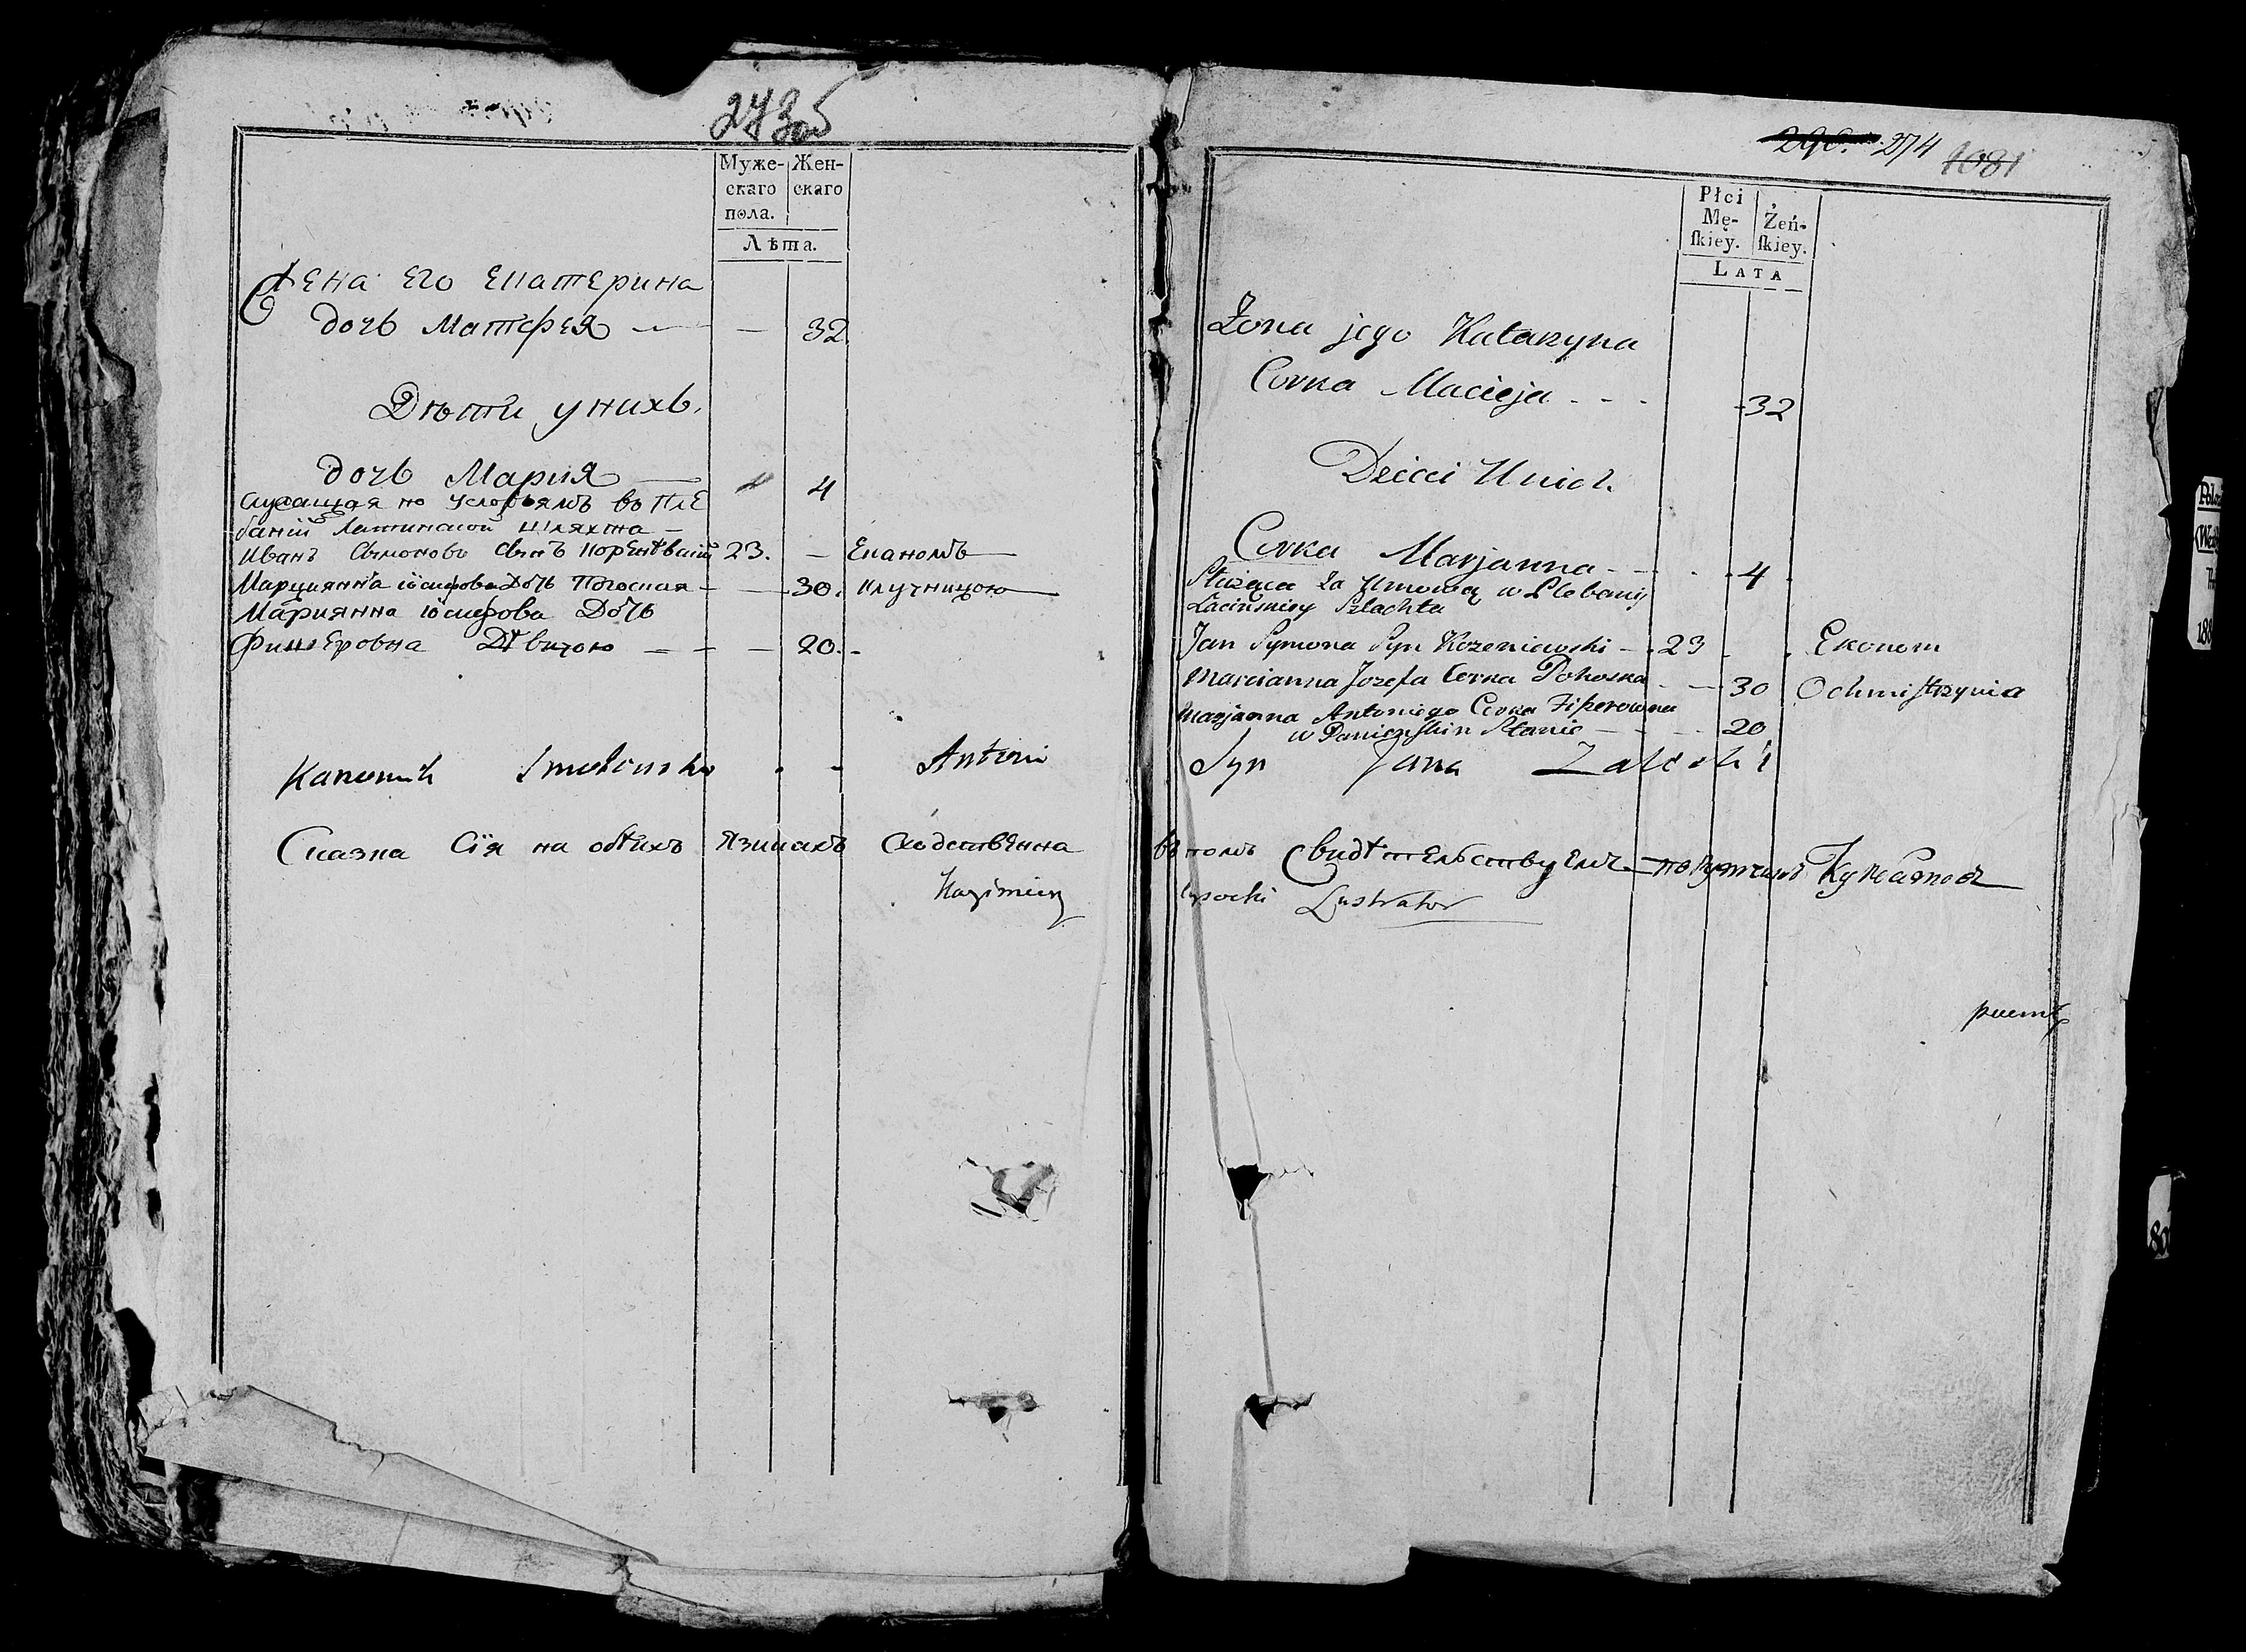 273об
Муже-
скаго
пола.
Жен-
скаго
Лѣта.
Жена Его Екатерина
дочь Матфея — — 32
Дѣти унихъ.
дочь Мария — 4
Служащая по Условьямъ во Пле
баніи Латинской шляхта —
Иванъ Сымоновъ сынъ Корженѣвскій 23. — Економъ
Марциянна Іосифова Дочь Погоская — — 30. ключницою
Марияння Іосифова Дочь
Фиперовна Дѣвицою — — — 20. -
Kanonik Antoni
Сказка Сія на обѣихъ Языкахъ Сходственна
Kazimierz
290. 274 1081
Płci
Mę-
skiey.
Żeń-
skiey.
LATA
Żona jego Katarzyna
Corka Macieja - - - 32
Dzieci Unich.
Corka Marjanna - - 4
Służąca za Umową w Plebanij
Łacinskiey Szlachta
Jan Symona Syn Korzeniewski - 23 Ekonom
Marcianna Jozefa Corka Pohoska - 30 Ochmistrzynia
Marjanna Antoniego Corka Fiperowna
w Panienskin Stanie - - 20
Syn Jana Zaleski
въ томъ Свидѣтельствуетъ
Lustrator